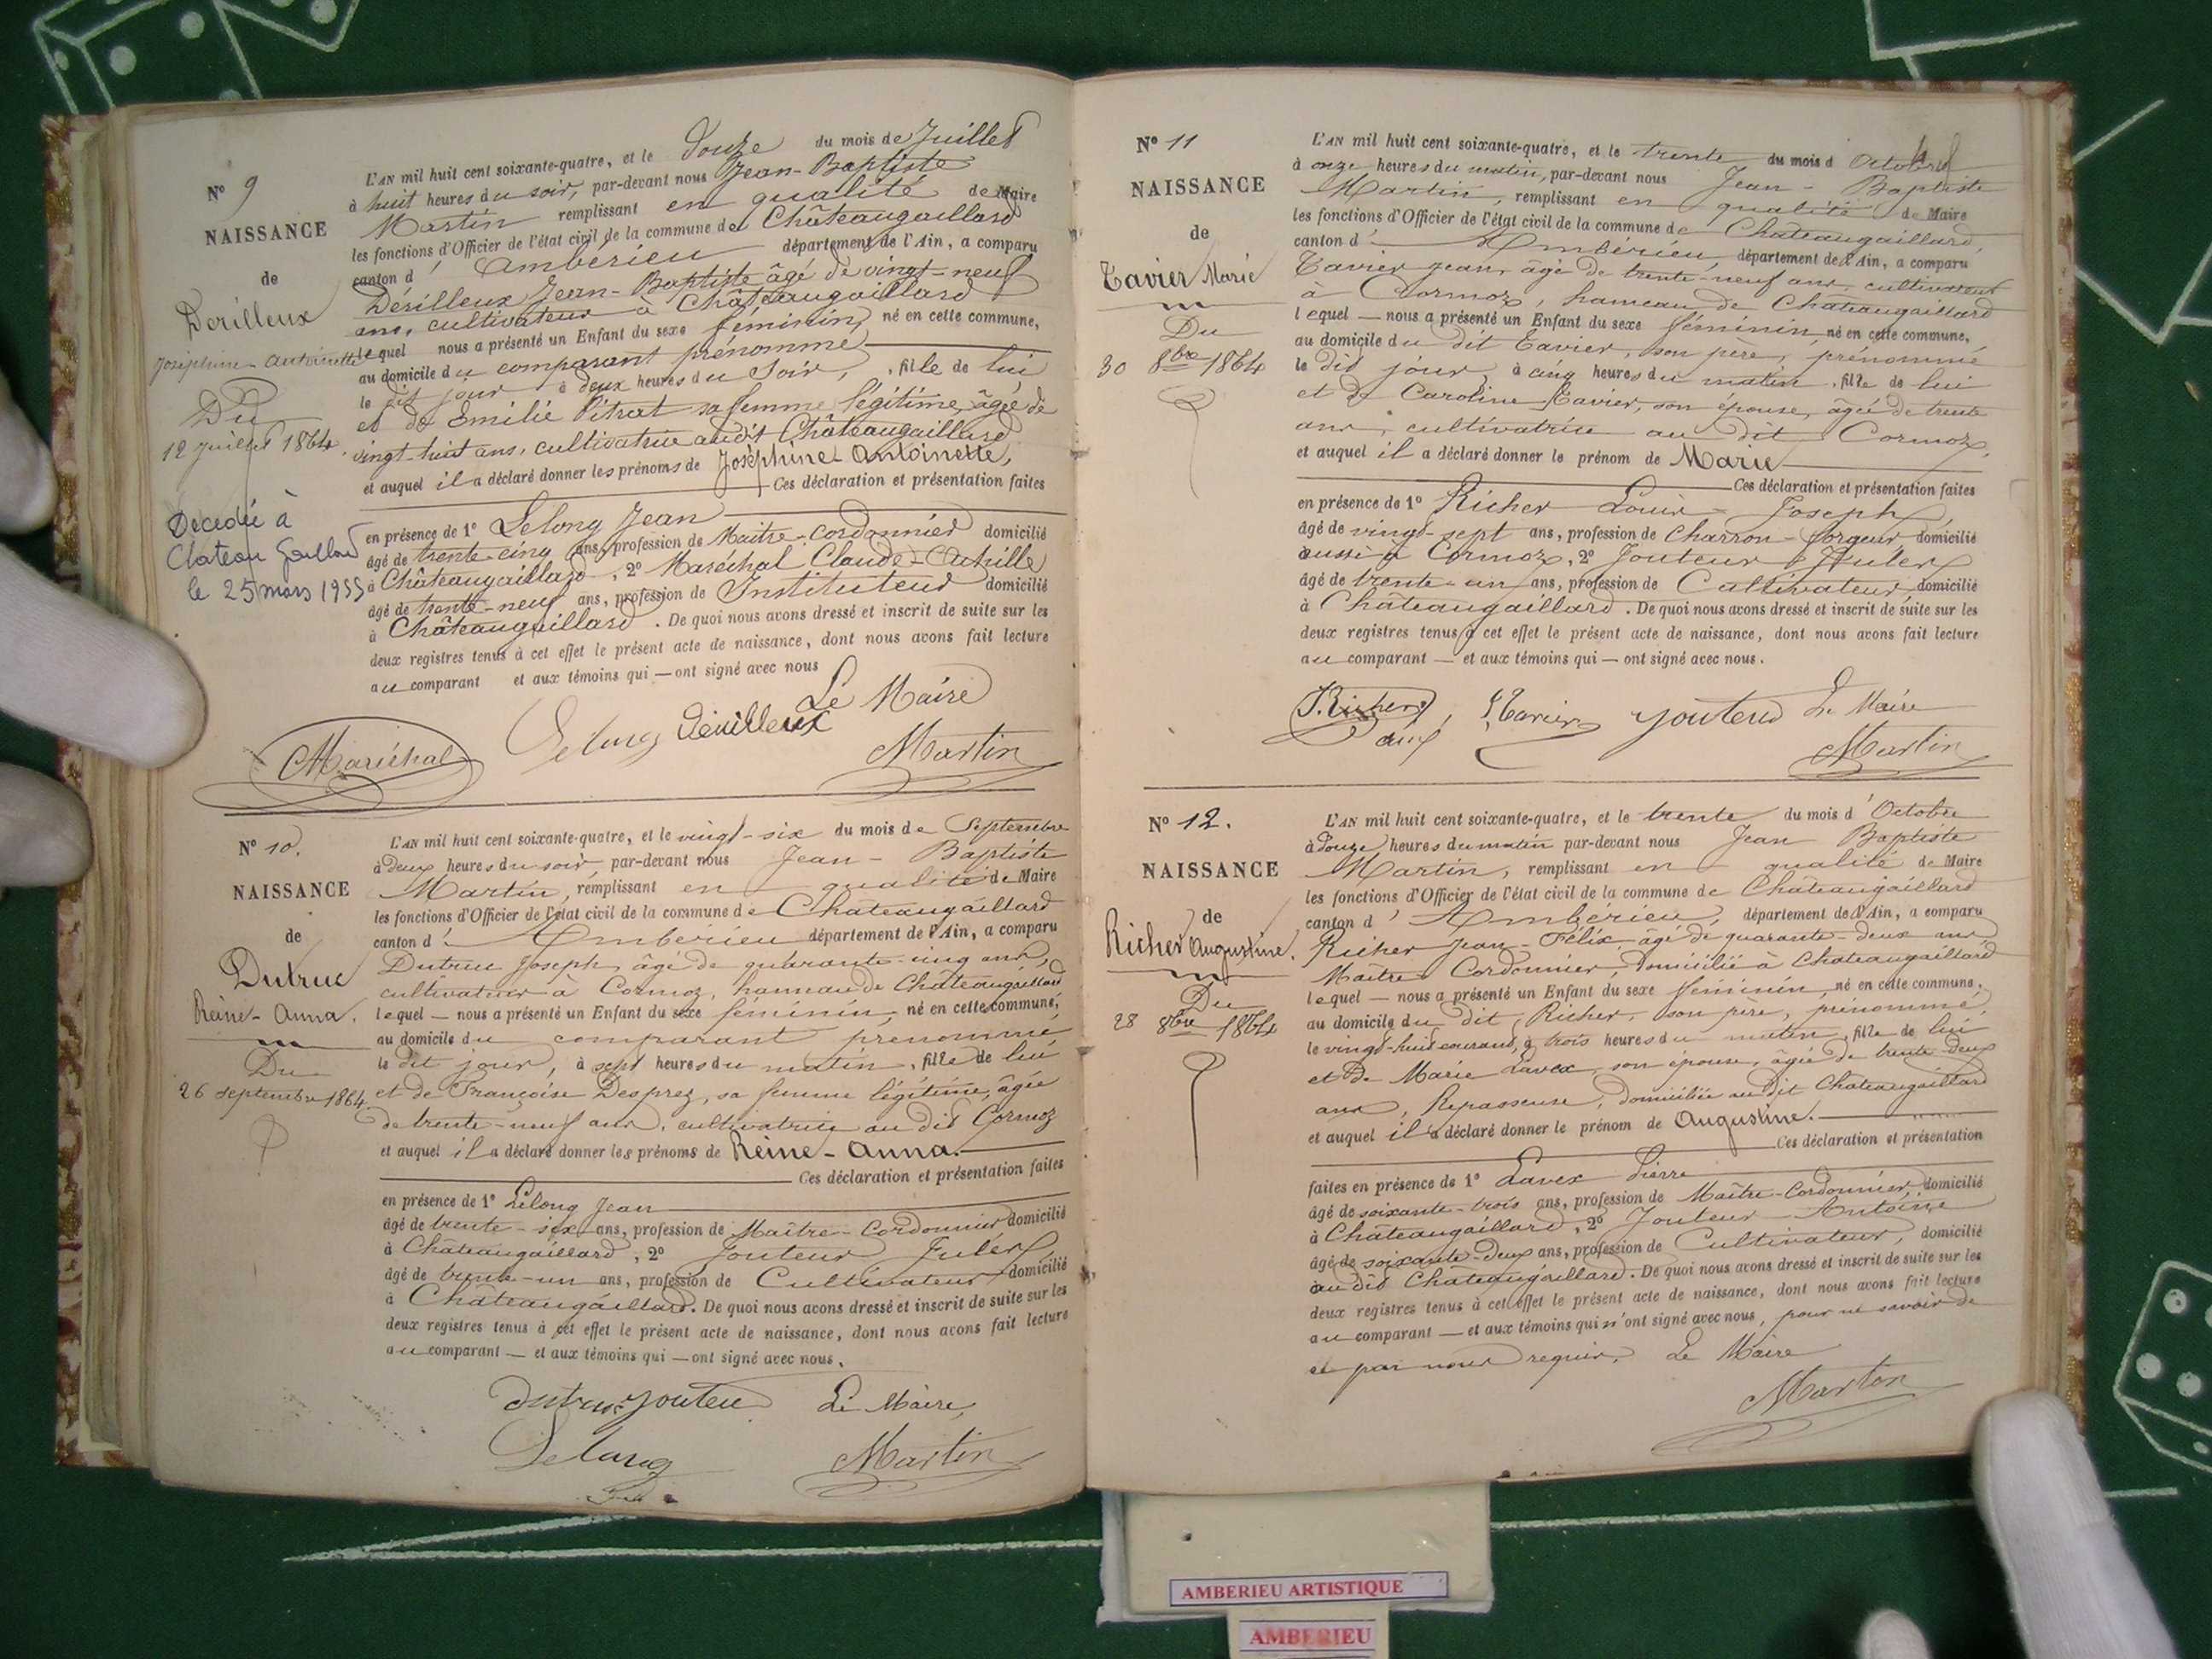 N° 9
NAISSANCE
de
Derilleux
Joséphine-Antoinette
Du
12 Juillet 1864.
Décédée à
Chateau Gaillard
le 25 mars 1955
L'AN mil huit cent soixante-quatre, et le douze du mois de Juillet
à huit heures du soir, par-devant nous Jean-Baptiste
Martin remplissant en qualité de Maire
les fonctions d'Officier de l'état civil de la commune de Châteaugaillard
canton d'Ambérieu département de l'Ain, a comparu
Derilleux Jean-Baptiste âgé de vingt-neuf
ans, cultivateur à Châteaugaillard
lequel nous a présenté un Enfant du sexe féminin, né en cette commune,
au domicile du comparant prénommé
le dit jour à deux heures du Soir, fille de lui
et de Emilie Pitrat sa femme légitime, âgée de
vingt-huit ans, cultivatrice audit Châteaugaillard
et auquel il a déclaré donner les prénoms de Joséphine-Antoinette,
Ces déclaration et présentation faites
en présence de 1° Lelong Jean
âgé de trente-cinq ans, profession de Maitre-cordonnier domicilié
à Châteaugaillard, 2° Maréchal Claude-Achille
âgé de trente-neuf ans, profession de Instituteur domicilié
à Châteaugaillard. De quoi nous avons dressé et inscrit de suite sur les
deux registres tenus à cet effet le présent acte de naissance, dont nous avons fait lecture
au comparant et aux témoins qui — ont signé avec nous
Le Maire
Maréchal Lelong Dérilleux Martin
N° 10.
NAISSANCE
de
Dutruc
Reine-Anna.
Du
26 Septembre 1864
L'AN mil huit cent soixante-quatre, et le vingt-six du mois de Septembre
à deux heures du soir, par-devant nous Jean-Baptiste
Martin, remplissant en qualité de Maire
les fonctions d'Officier de l'état civil de la commune de Châteaugaillard
canton d'Ambérieu département de l'Ain, a comparu
Dutruc Joseph, âgé de quarante-cinq ans,
cultivateur à Cormoz, hameau de Châteaugaillard
lequel — nous a présenté un Enfant du sexe féminin, né en cette commune,
au domicile du comparant prénommé
le dit jour, à sept heures du matin, fille de lui
et de Françoise Desprez, sa femme légitime, âgée
de trente-neuf ans, cultivatrice au dit Cormoz
et auquel il a déclaré donner les prénoms de Reine-Anna.
Ces déclaration et présentation faites
en présence de 1° Lelong Jean
âgé de trente-six ans, profession de Maître-Cordonnier domicilié
à Châteaugaillard, 2° Jouteur Jules
âgé de trente-un ans, profession de Cultivateur domicilié
à Châteaugaillard. De quoi nous avons dressé et inscrit de suite sur les
deux registres tenus à cet effet le présent acte de naissance, dont nous avons fait lecture
au comparant — et aux témoins qui — ont signé avec nous.
Dutruc Jouteur Le Maire,
Lelong Martin
N° 11
NAISSANCE
de
Tavier Marie
Du
30 8bre 1864
L'AN mil huit cent soixante-quatre, et le trente du mois d'Octobre
à onze heures du matin, par-devant nous Jean-Baptiste
Martin, remplissant en qualité de Maire
les fonctions d'Officier de l'état civil de la commune de Châteaugaillard,
canton d'Ambérieu, département de l'Ain, a comparu
Tavier Jean, âgé de trente-neuf ans, cultivateur
à Cormoz, hameau de Châteaugaillard
lequel — nous a présenté un Enfant du sexe féminin, né en cette commune,
au domicile du dit Tavier, son père, prénommé
le dit jour, à cinq heures du matin, fille de lui
et de Caroline Tavier, son épouse, âgée de trente
ans, cultivatrice au dit Cormoz,
et auquel il a déclaré donner le prénom de Marie
Ces déclaration et présentation faites
en présence de 1° Richer Louis-Joseph,
âgé de vingt-sept ans, profession de Charron-forgeur domicilié
aussi à Cormoz, 2° Jouteur Jules
âgé de trente-un ans, profession de Cultivateur domicilié
à Châteaugaillard. De quoi nous avons dressé et inscrit de suite sur les
deux registres tenus à cet effet le présent acte de naissance, dont nous avons fait lecture
au comparant — et aux témoins qui — ont signé avec nous.
Richer Tavier Jouteur Le Maire
Martin
N° 12.
NAISSANCE
de
Richer Augustine.
Du
28 8bre 1864
L'AN mil huit cent soixante-quatre, et le trente du mois d'Octobre
à douze heures du matin par-devant nous Jean Baptiste
Martin, remplissant en qualité de Maire
les fonctions d'Officier de l'état civil de la commune de Châteaugaillard
canton d'Ambérieu, département de l'Ain, a comparu
Richer Jean-Félix, âgé de quarante-deux ans
Maître Cordonnier, domicilié à Châteaugaillard
lequel — nous a présenté un Enfant du sexe féminin, né en cette commune,
au domicile du dit Richer, son père, prénommé,
le vingt-huit courant, à trois heures du matin, fille de lui
et de Marie Lavex, son épouse, âgée de trente-deux
ans, Repasseuse, domiciliée au dit Châteaugaillard
et auquel il a déclaré donner le prénom de Augustine.
Ces déclaration et présentation
faites en présence de 1° Lavex Pierre
âgé de soixante-trois ans, profession de Maître-Cordonnier, domicilié
à Châteaugaillard, 2° Jouteur Antoine
âgé de soixante-deux ans, profession de Cultivateur, domicilié
au dit Châteaugaillard. De quoi nous avons dressé et inscrit de suite sur les
deux registres tenus à cet effet le présent acte de naissance, dont nous avons fait lecture
au comparant — et aux témoins qui n'ont signé avec nous, pour ne savoir de
ce par nous requis. Le Maire
Martin
AMBERIEU ARTISTIQUE
AMBERIEU